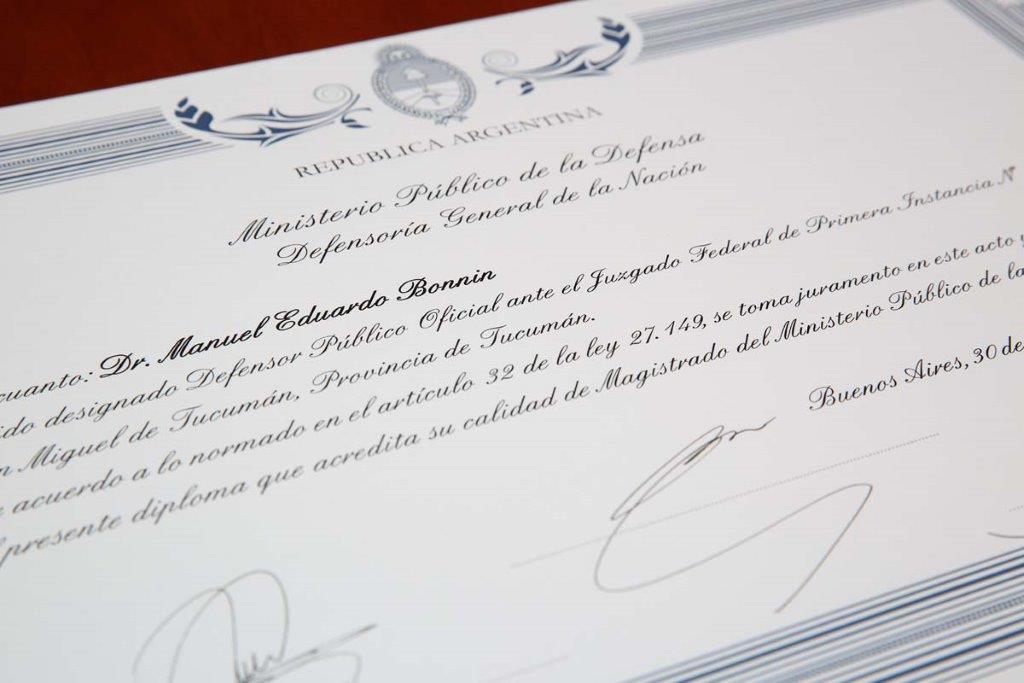 REPUBLICA ARGENTINA
Ministerio Público de la Defensa
Defensoría General de la Nación
cuanto: Dr. Manuel Eduardo Bonnin
ido designado Defensor Público Oficial ante el Juzgado Federal de Primera Instancia N°
n Miguel de Tucumán, Provincia de Tucumán.
acuerdo a lo normado en el artículo 32 de la ley 27.149, se toma juramento en este acto y
presente diploma que acredita su calidad de Magistrado del Ministerio Público de la
Buenos Aires, 30 de